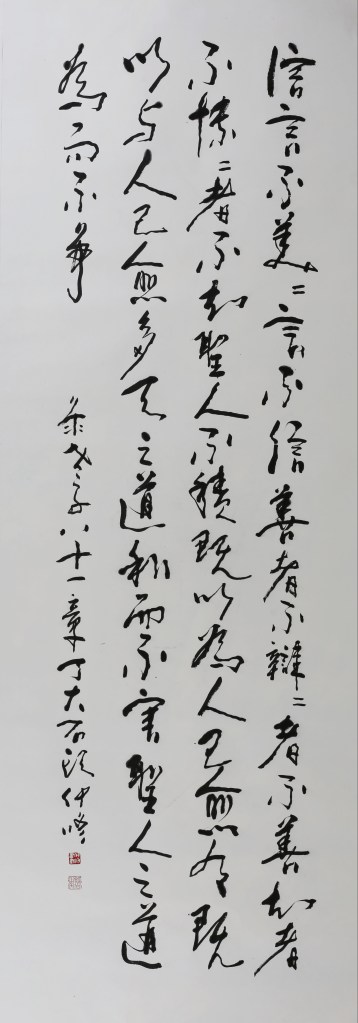 信言不美〻言不信善者不辯〻者不善知者
不博〻者不知聖人不積既以為人己愈有既
以与人己愈多天之道利而不害聖人之道
為而不爭
老子八十一章丁大石